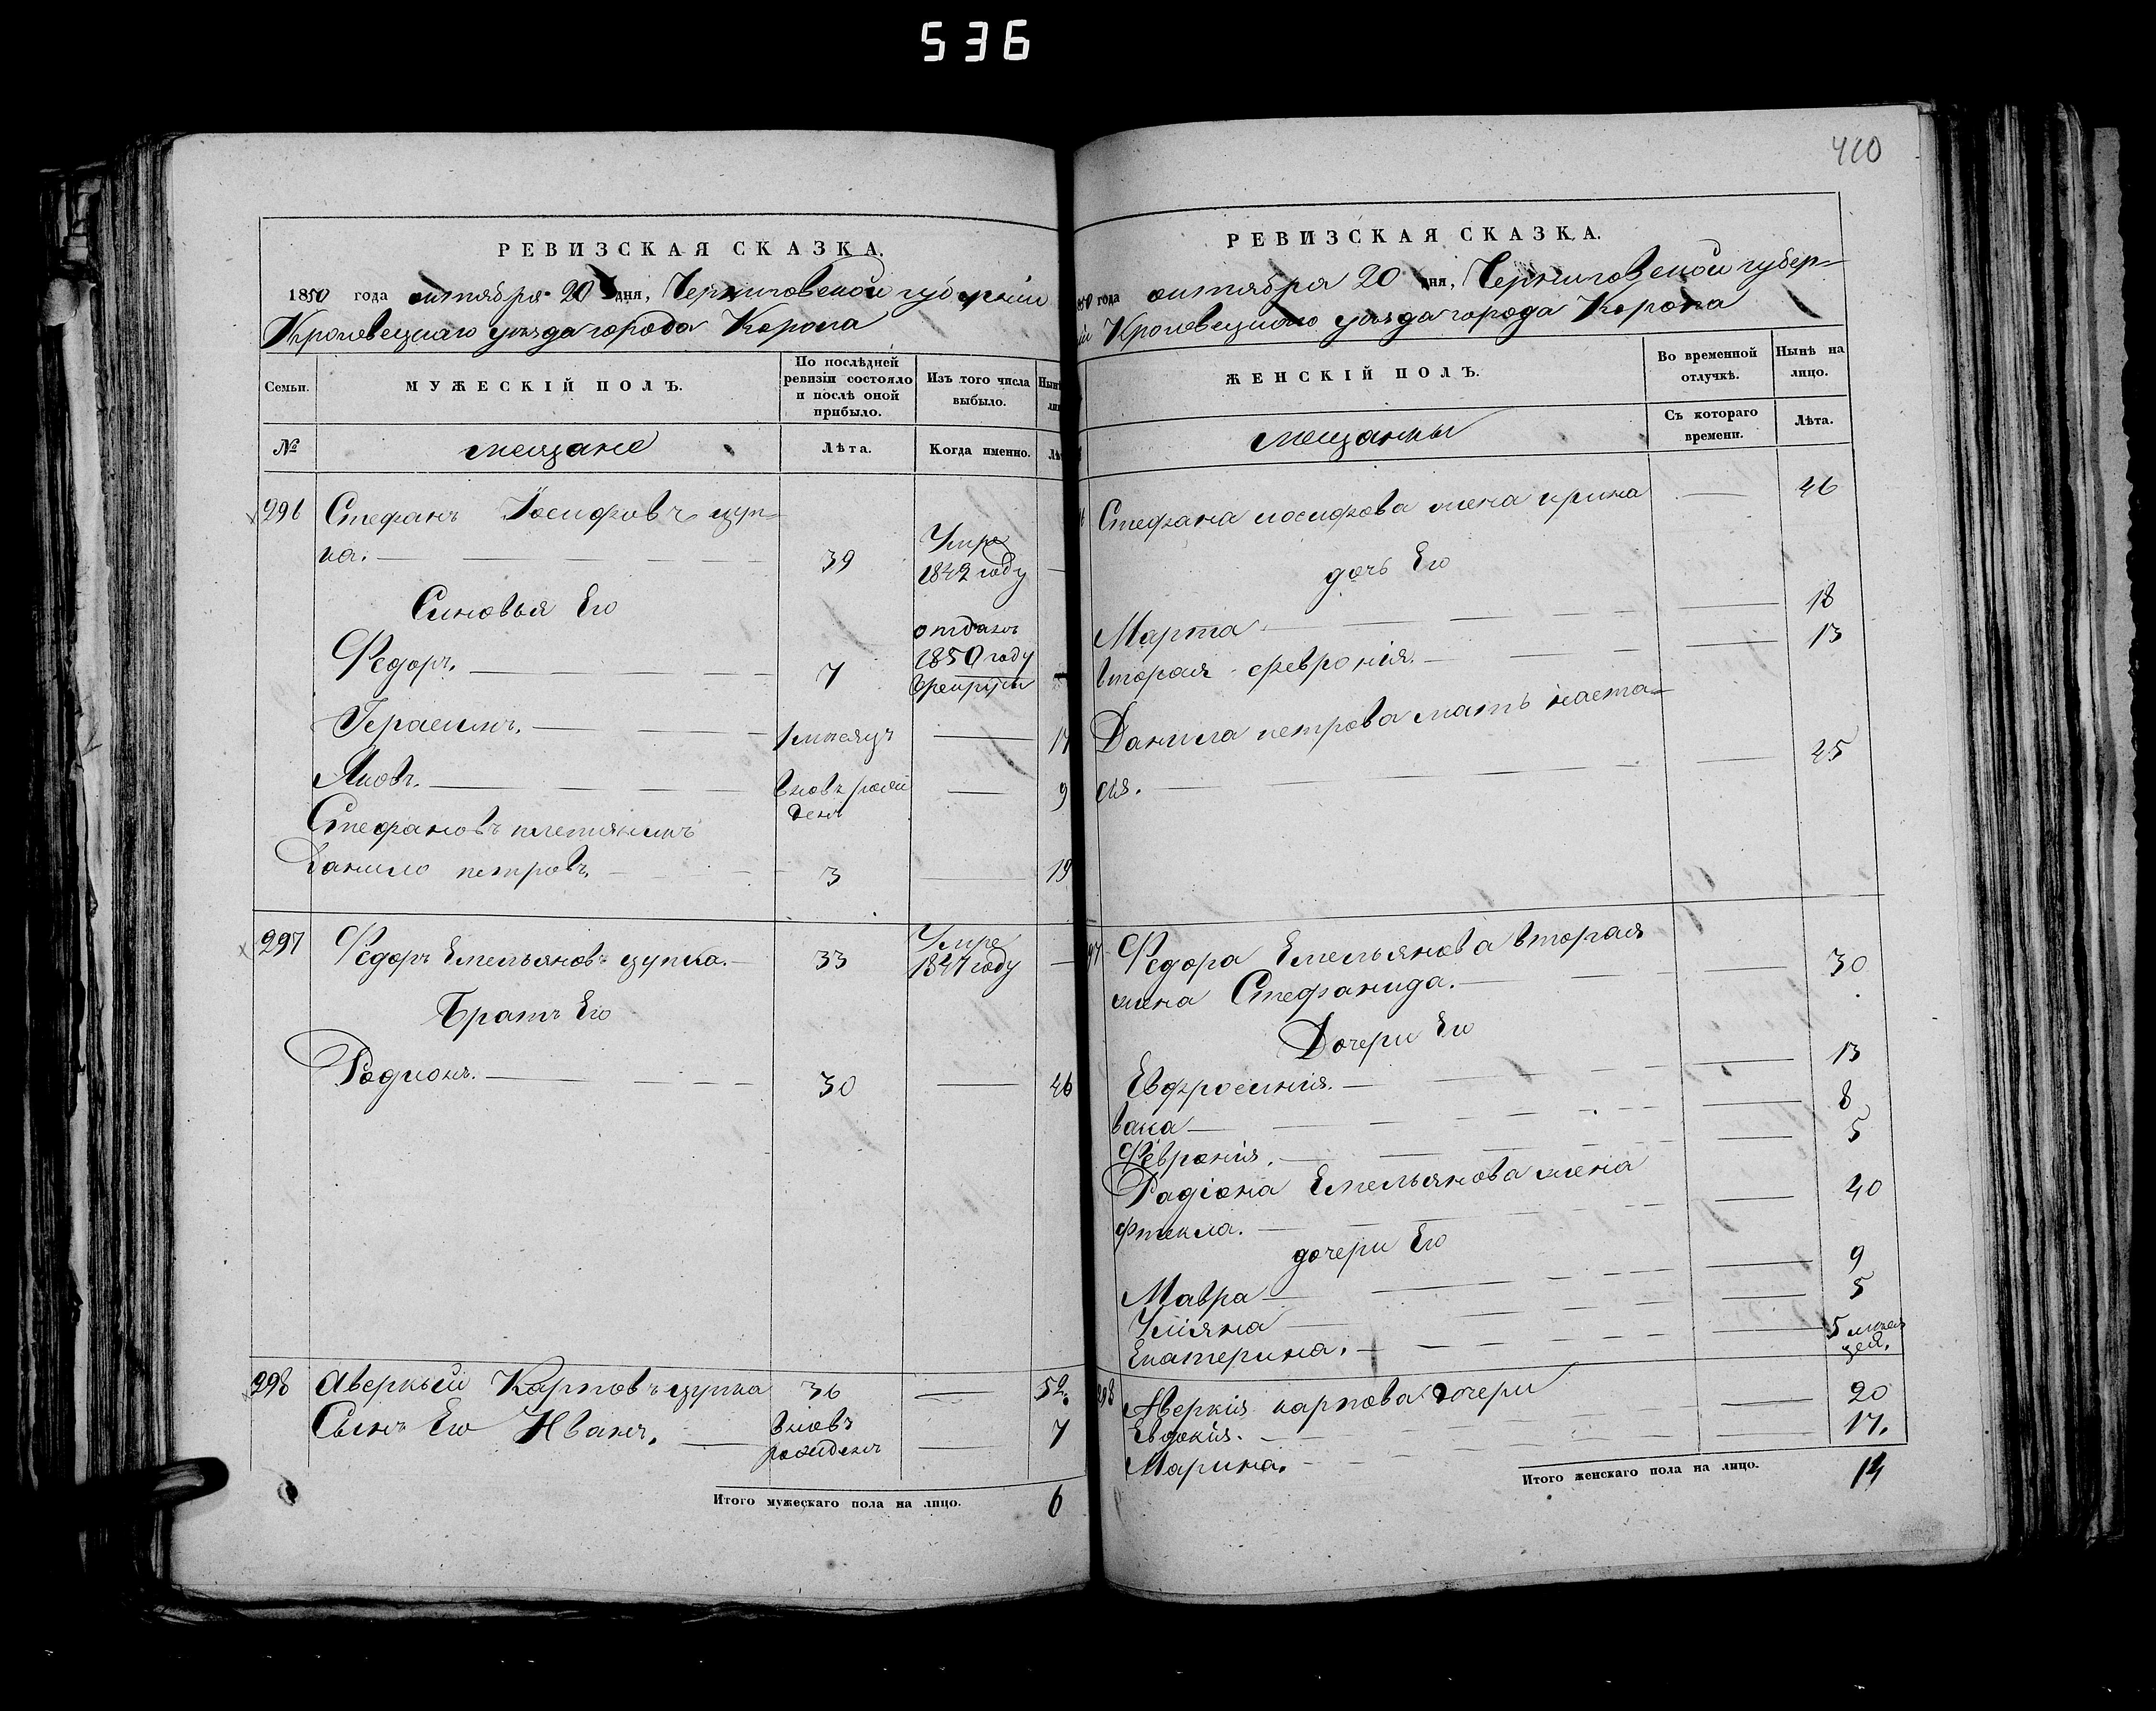 536
410
РЕВИЗСКАЯ СКАЗКА.
1850 года октября 20 дня, Черниговской губернїи
Кролевецкаго уѣзда города Коропа
Семьи.
МУЖЕСКІЙ ПОЛЪ.
По послѣдней ревизіи состояло и послѣ оной прибыло.
Изъ того числа выбыло.
№
мещане
Лѣта.
Когда именно.
296 Стефанъ Іосифовъ цуп-
ка. 39 Умре 1842 году
Синовья Его
Федоръ. 7 отданъ 1850 году врекруты
Герасимъ. 1 мѣсяцъ
Яковъ. вновь рожденъ 9
Стефановъ племяникъ
Данило петровъ 3 19
297 Федоръ Емельяновъ цупка. 33 Умре 1847 году
Братъ Его
Радионъ. 30 46
298 Аверкый Карповъ цупка 36 52.
Сынъ Его Иванъ. вновъ рожденъ 7
Итого мужескаго пола на лицо. 6
РЕВИЗСКАЯ СКАЗКА.
года октября 20 дня, Черниговской губер-
Кролевецкаго уѣзда города Коропа
ЖЕНСКІЙ ПОЛЪ.
Во временной отлучкѣ.
Нынѣ на лицо.
мещанки
Съ котораго времени.
Лѣта.
Стефана иосифова жена ирина 46
дочь Его
Марта 18
вторая феврония. 13
Данила петрова мать наста-
сия. 45
Федора Емельянова вторая
жена Стефанида. 30
Дочери Его
Евфросиния. 13
васса 8
Феврония. 5
Радіона Емельянова жена
фтекла. 40
дочери Его
Мавра 9
Улїяна 5
Екатерина. 5 мѣся цей.
298 Аверкия карпова дочери
Евдокия. 20
Марина. 17.
Итого женскаго пола на лицо. 14